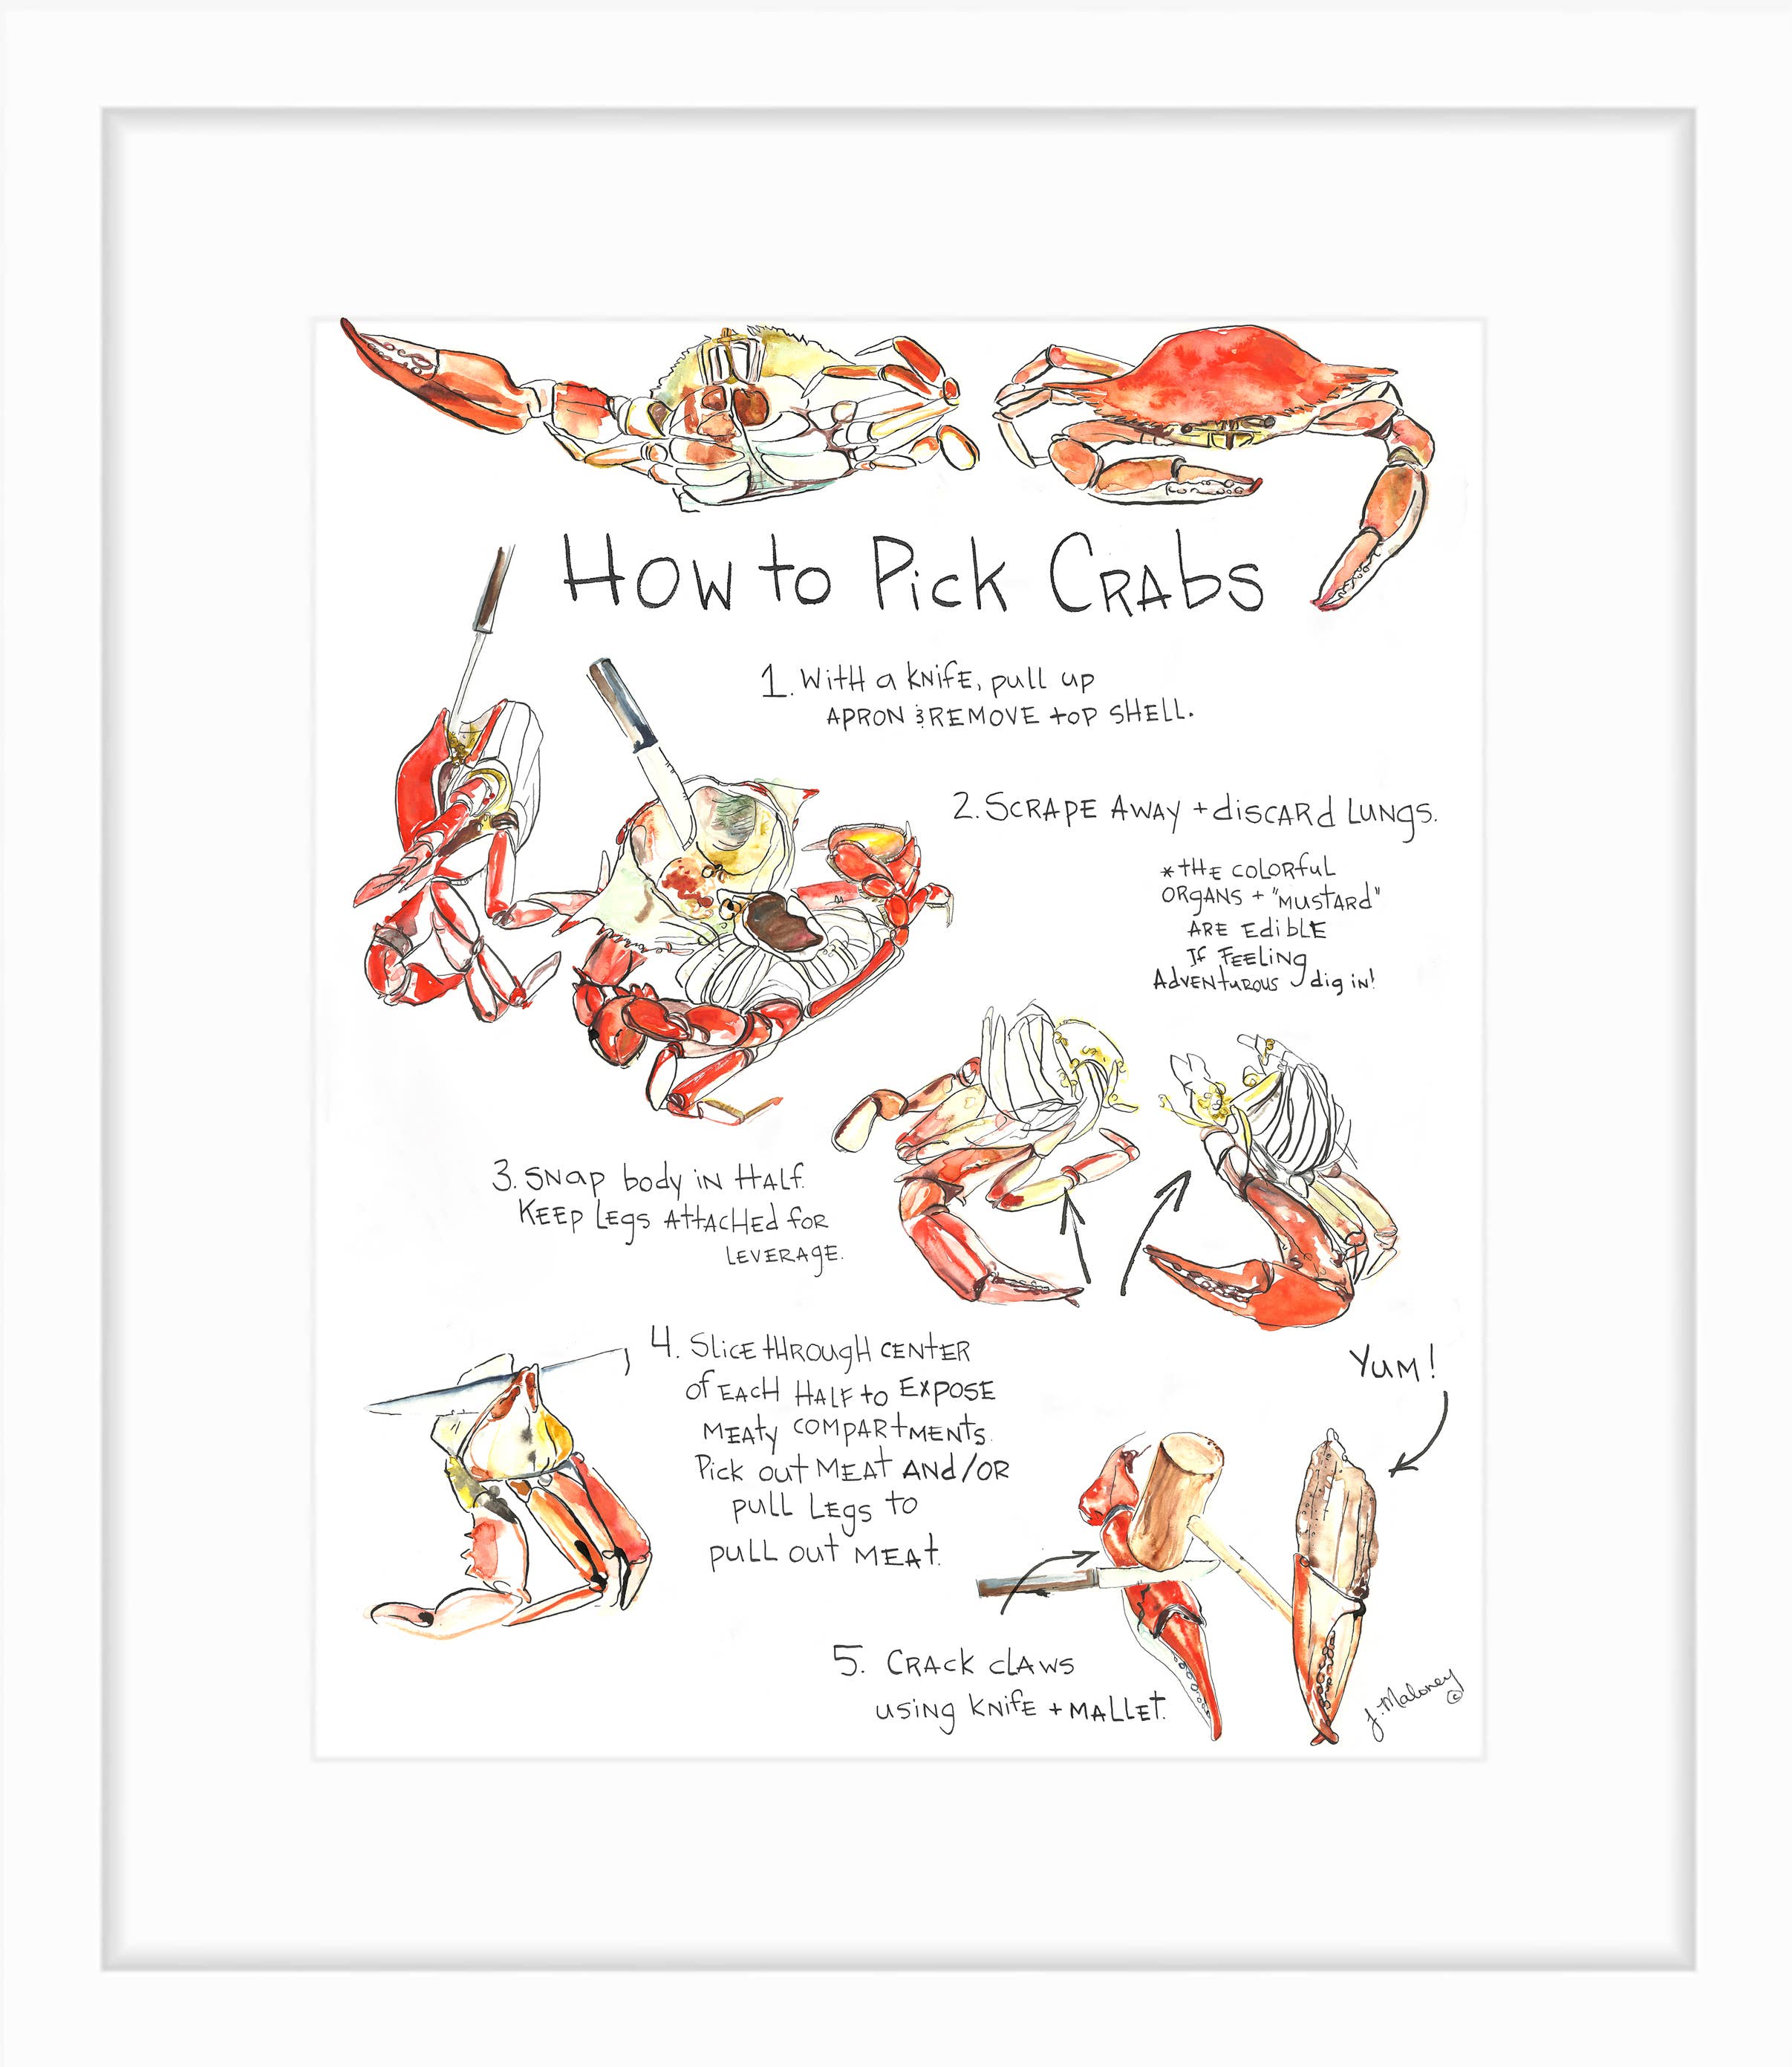 How to Pick Crabs
1. With a knife, pull up
apron & remove top shell.
2. Scrape away + discard lungs.
*the colorful
organs + "mustard"
are edible
If feeling
adventurous dig in!
3. Snap body in half.
Keep legs attached for
leverage.
4. Slice through center
of each half to expose
meaty compartments.
Pick out meat and/or
pull legs to
pull out meat.
Yum!
5. Crack claws
using knife + mallet.
J. Maloney ©